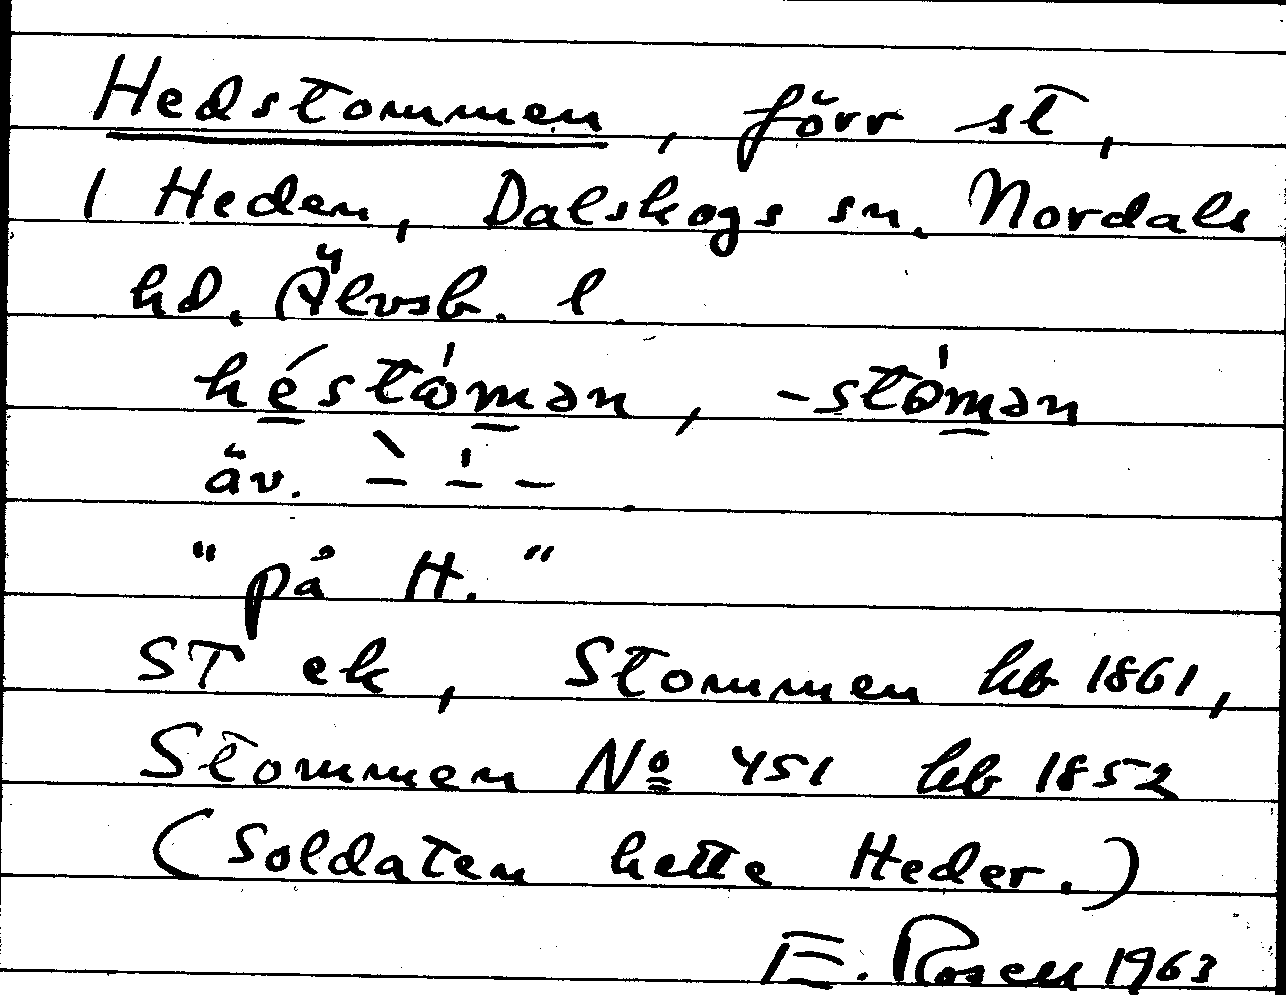 Hedstommen, förr st,
1 Heden, Dalskogs sn. Nordals
hd. Älvsb. l.
héstó̍mən, -stó̍mən
äv. –̀ –̍ –
"på H."
ST ek, Stommen hb 1861,
Stommen Nº 451 hb 1852
(Soldaten hette Heder.)
E. Rosell 1963